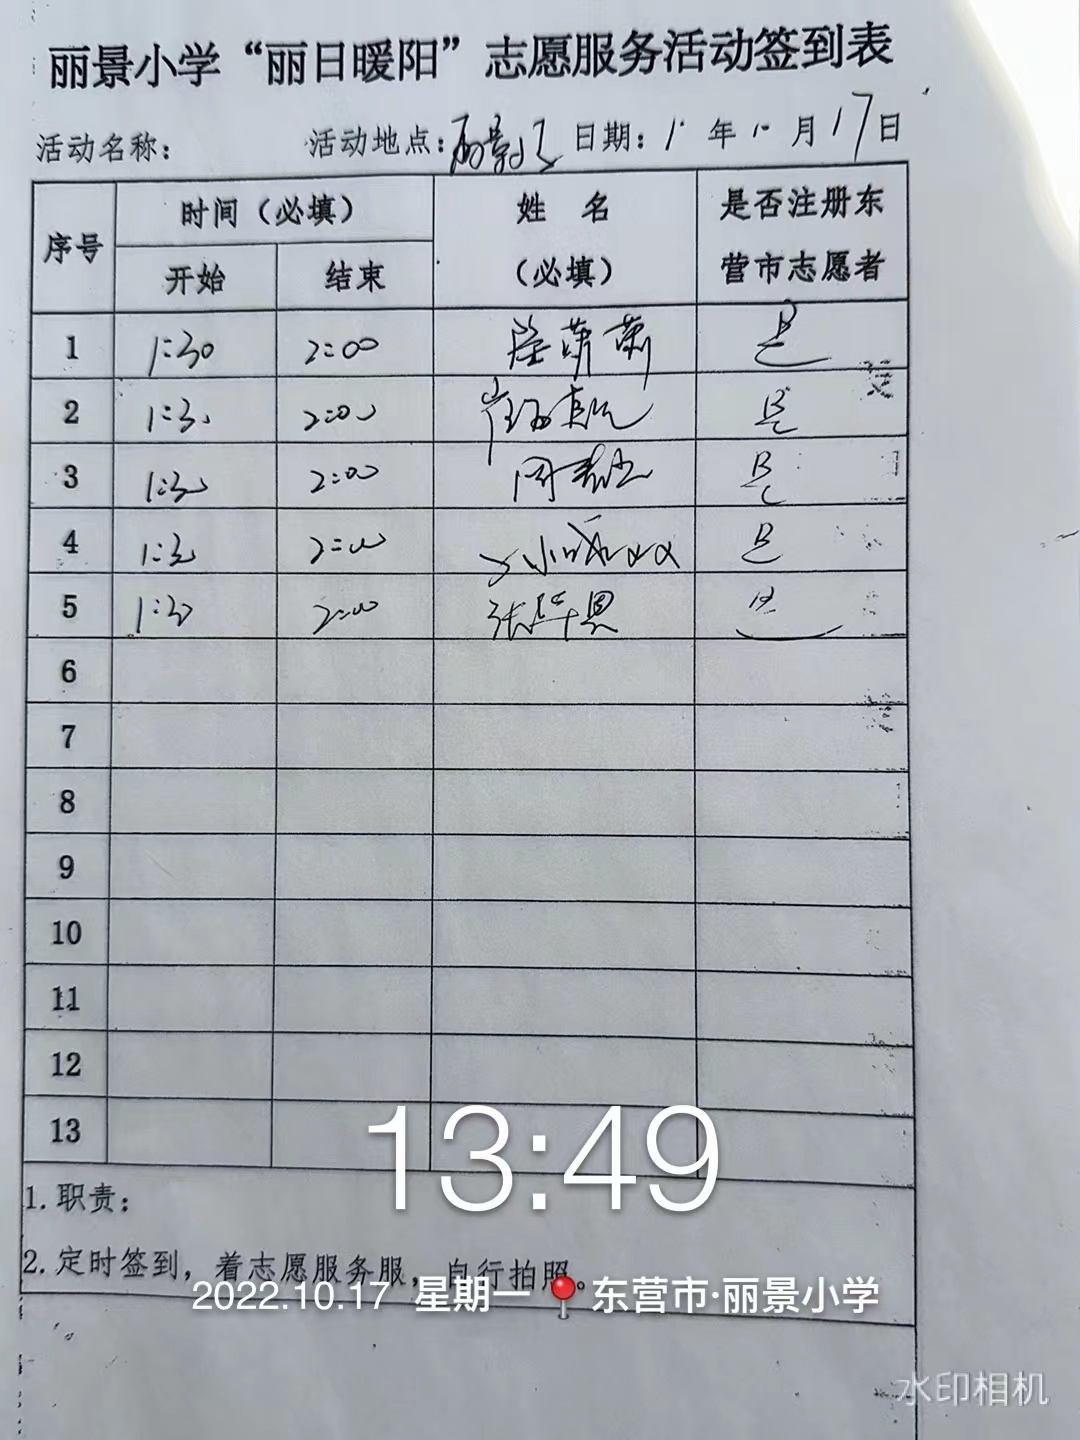 丽景小学“丽日暖阳”志愿服务活动签到表
活动名称： 活动地点：丽景小学 日期： 年 10 月 17 日
序号 时间（必填） 姓 名（必填） 是否注册东营市志愿者
开始 结束
1 1:30 2:00 是
2 1:30 2:00 是
3 1:30 2:00 是
4 1:30 2:00 是
5 1:30 2:00 张华恩 是
6
7
8
9
10
11
12
13
13:49
1.职责：
2.定时签到，着志愿服务服，自行拍照。
2022.10.17 星期一 东营市·丽景小学
水印相机